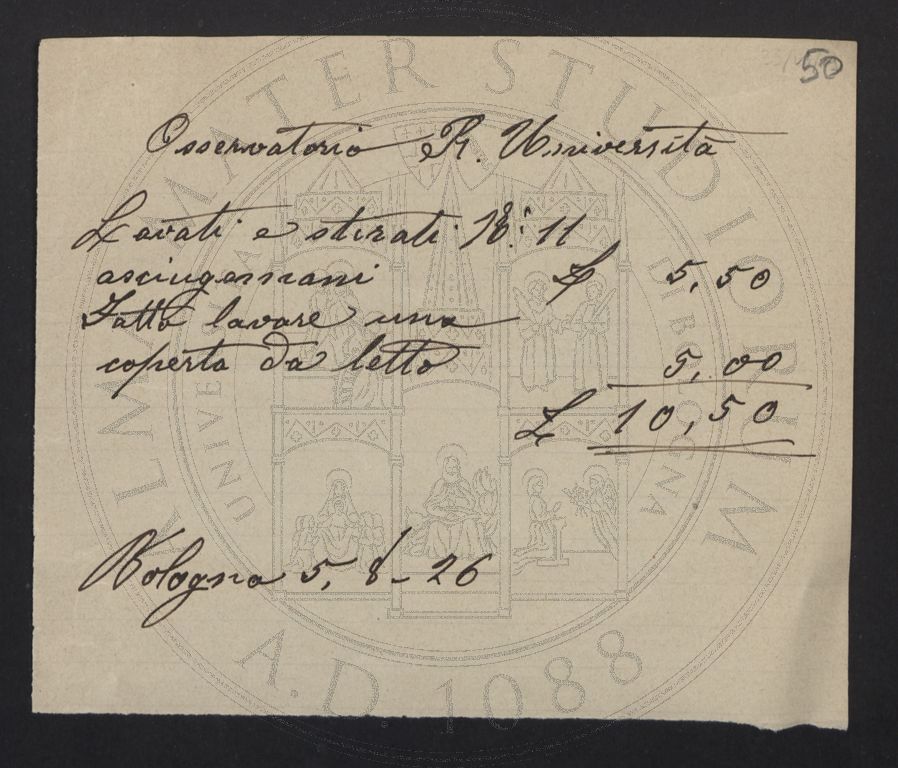 50
Osservatorio R. Università
Lavati e stirati N: 11
asciugamani £ 5,50
Fatto lavare una
coperta da letto 5,00
£ 10,50
Bologna 5, 8 - 26
ALMA MATER STUDIORUM
UNIVERSITÀ DI BOLOGNA
A.D. 1088